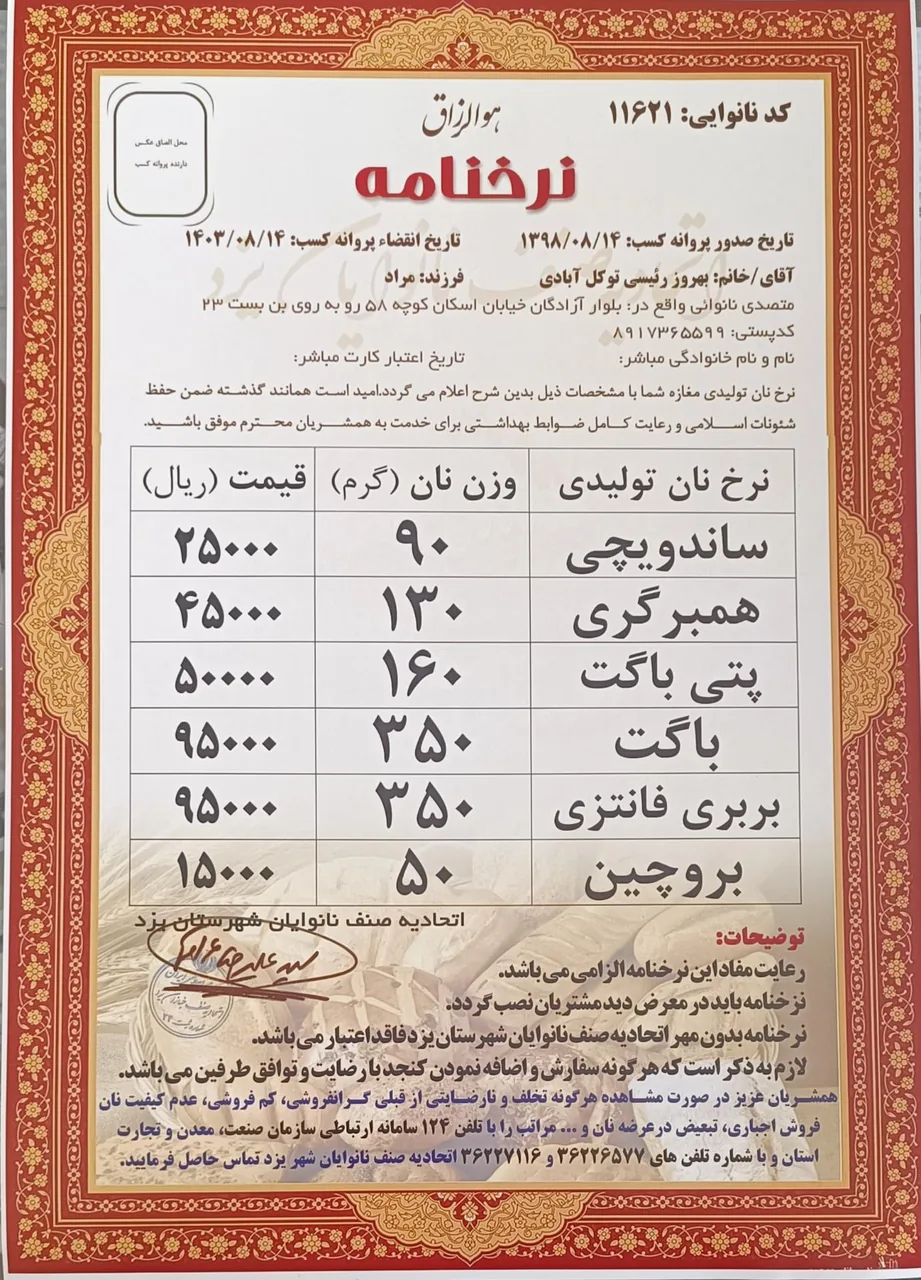 هوالرزاق
کد نانوایی: ۱۱۶۲۱
محل الصاق عکس
دارنده پروانه کسب
نرخنامه
تاریخ صدور پروانه کسب: ۱۳۹۸/۰۸/۱۴ تاریخ انقضاء پروانه کسب: ۱۴۰۳/۰۸/۱۴
آقای/خانم: بهروز رئیسی توکل آبادی فرزند: مراد
متصدی نانوائی واقع در: بلوار آزادگان خیابان اسکان کوچه ۵۸ رو به روی بن بست ۲۳
کدپستی: ۸۹۱۷۳۶۵۵۹۹
نام و نام خانوادگی مباشر: تاریخ اعتبار کارت مباشر:
نرخ نان تولیدی مغازه شما با مشخصات ذیل بدین شرح اعلام می گردد.امید است همانند گذشته ضمن حفظ
شئونات اسلامی و رعایت کامل ضوابط بهداشتی برای خدمت به همشریان محترم موفق باشید.
نرخ نان تولیدی وزن نان (گرم) قیمت (ریال)
ساندویچی ۹۰ ۲۵۰۰۰
همبرگری ۱۳۰ ۴۵۰۰۰
پتی باگت ۱۶۰ ۵۰۰۰۰
باگت ۳۵۰ ۹۵۰۰۰
بربری فانتزی ۳۵۰ ۹۵۰۰۰
بروچین ۵۰ ۱۵۰۰۰
اتحادیه صنف نانوایان شهرستان یزد
توضیحات:
رعایت مفاد این نرخنامه الزامی می باشد.
نرخنامه باید در معرض دید مشتریان نصب گردد.
نرخنامه بدون مهر اتحادیه صنف نانوایان شهرستان یزد فاقد اعتبار می باشد.
لازم به ذکر است که هر گونه سفارش و اضافه نمودن کنجد با رضایت و توافق طرفین می باشد.
همشریان عزیز در صورت مشاهده هرگونه تخلف و نارضایتی از قبلی گرانفروشی، کم فروشی، عدم کیفیت نان
فروش اجباری، تبعیض درعرضه نان و ... مراتب را با تلفن ۱۲۴ سامانه ارتباطی سازمان صنعت، معدن و تجارت
استان و با شماره تلفن های ۳۶۲۲۶۵۷۷ و ۳۶۲۲۷۱۱۶ اتحادیه صنف نانوایان شهر یزد تماس حاصل فرمایید.